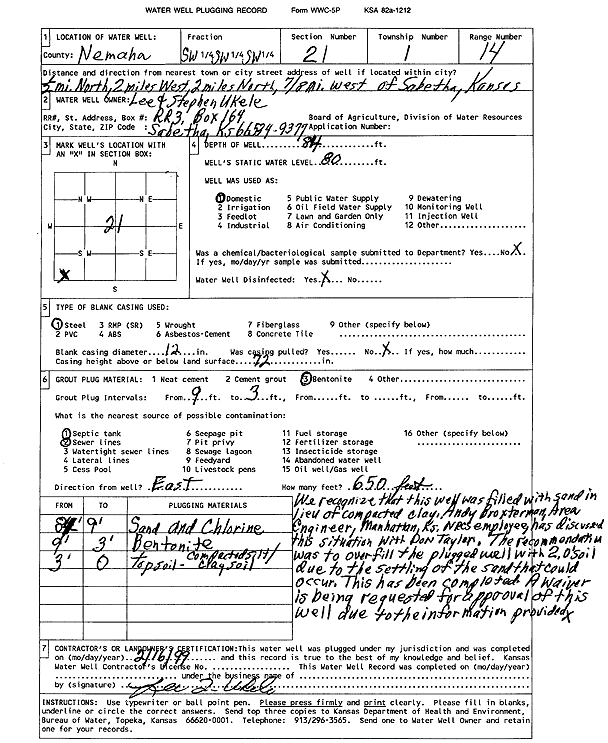 WATER WELL PLUGGING RECORD Form WWC-5P KSA 82a-1212
1 LOCATION OF WATER WELL: Fraction Section Number Township Number Range Number
County: Nemaha SW 1/4 SW 1/4 SW 1/4 21 1 14
Distance and direction from nearest town or city street address of well if located within city?
1/2 mi. North, 2 miles West, 2 miles North, 7/8 mi. west of Sabetha, Kansas
2 WATER WELL OWNER: Lee & Stephen Ukele
RR#, St. Address, Box #: RR3, Box 169 Board of Agriculture, Division of Water Resources
City, State, ZIP Code : Sabetha, Ks 66534-9377 Application Number:
3 MARK WELL'S LOCATION WITH
AN "X" IN SECTION BOX:
N
N W N E
W 21 E
S W S E
X
S
4 DEPTH OF WELL......84......ft.
WELL'S STATIC WATER LEVEL..80....ft.
WELL WAS USED AS:
1 Domestic 5 Public Water Supply 9 Dewatering
2 Irrigation 6 Oil Field Water Supply 10 Monitoring Well
3 Feedlot 7 Lawn and Garden Only 11 Injection Well
4 Industrial 8 Air Conditioning 12 Other.........
Was a chemical/bacteriological sample submitted to Department? Yes....No.X.
If yes, mo/day/yr sample was submitted...................
Water Well Disinfected: Yes.X.. No.....
5 TYPE OF BLANK CASING USED:
1 Steel 3 RMP (SR) 5 Wrought 7 Fiberglass 9 Other (specify below)
2 PVC 4 ABS 6 Asbestos-Cement 8 Concrete Tile ..............................
Blank casing diameter....12....in. Was casing pulled? Yes...... No..X.. If yes, how much..........
Casing height above or below land surface....72..........in.
6 GROUT PLUG MATERIAL: 1 Neat cement 2 Cement grout 3 Bentonite 4 Other........................
Grout Plug Intervals: From..9..ft. to ..3..ft., From......ft. to ......ft., From...... to......ft.
What is the nearest source of possible contamination:
1 Septic tank 6 Seepage pit 11 Fuel storage 16 Other (specify below)
2 Sewer lines 7 Pit privy 12 Fertilizer storage ..............................
3 Watertight sewer lines 8 Sewage lagoon 13 Insecticide storage
4 Lateral lines 9 Feedyard 14 Abandoned water well
5 Cess Pool 10 Livestock pens 15 Oil well/Gas well
Direction from well? East How many feet? 650 feet
FROM TO PLUGGING MATERIALS
84' 9' Sand and Chlorine
9' 3' Bentonite
3' 0 Topsoil - compacted silt/clay soil
We recognize that this well was filled with sand in
lieu of compacted clay. Andy Broxterman, Area
Engineer, Manhattan, Ks. NRCS employee, has discussed
this situation with Don Taylor. The recommendation
was to overfill the plugged well with 2.0 soil
due to the settling of the sand that could
occur. This has been completed. A Waiver
is being requested for approval of this
well due to the information provided
7 CONTRACTOR'S OR LANDOWNER'S CERTIFICATION: This water well was plugged under my jurisdiction and was completed
on (mo/day/year)..2/16/99...... and this record is true to the best of my knowledge and belief. Kansas
Water Well Contractor's License No................ This Water Well Record was completed on (mo/day/year)
......................under the business name of ..............................
by (signature)
INSTRUCTIONS: Use typewriter or ball point pen. Please press firmly and print clearly. Please fill in blanks,
underline or circle the correct answers. Send top three copies to Kansas Department of Health and Environment,
Bureau of Water, Topeka, Kansas 66620-0001. Telephone: 913/296-3565. Send one to Water Well Owner and retain
one for your records.